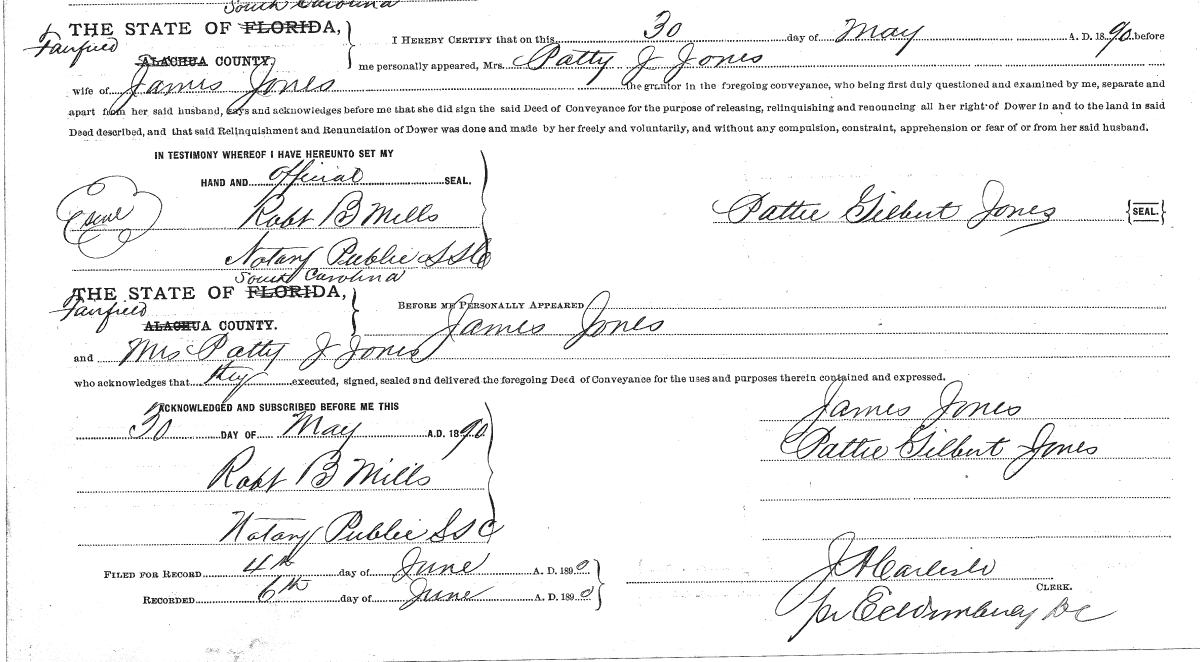 South Carolina
THE STATE OF FLORIDA,
Fairfield
ALACHUA COUNTY.
I HEREBY CERTIFY that on this 30 day of May A. D. 1890 before
me personally appeared, Mrs. Patty J Jones
wife of James Jones the grantor in the foregoing conveyance, who being first duly questioned and examined by me, separate and
apart from her said husband, says and acknowledges before me that she did sign the said Deed of Conveyance for the purpose of releasing, relinquishing and renouncing all her right of Dower in and to the land in said
Deed described, and that said Relinquishment and Renunciation of Dower was done and made by her freely and voluntarily, and without any compulsion, constraint, apprehension or fear of or from her said husband.
IN TESTIMONY WHEREOF I HAVE HEREUNTO SET MY
HAND AND official SEAL.
Seal
Robt B Mills
Pattie Gilbert Jones {SEAL.}
Notary Public S S C
South Carolina
THE STATE OF FLORIDA,
Fairfield
ALACHUA COUNTY.
BEFORE ME PERSONALLY APPEARED
James Jones
and Mrs Patty J Jones
who acknowledges that they executed, signed, sealed and delivered the foregoing Deed of Conveyance for the uses and purposes therein contained and expressed.
ACKNOWLEDGED AND SUBSCRIBED BEFORE ME THIS
30 DAY OF May A.D. 1890
James Jones
Pattie Gilbert Jones
Robt B Mills
Notary Public S S C
FILED FOR RECORD 4th day of June A. D. 1890
RECORDED 6th day of June A. D. 1890
J A Carlisle
CLERK.
pr DC